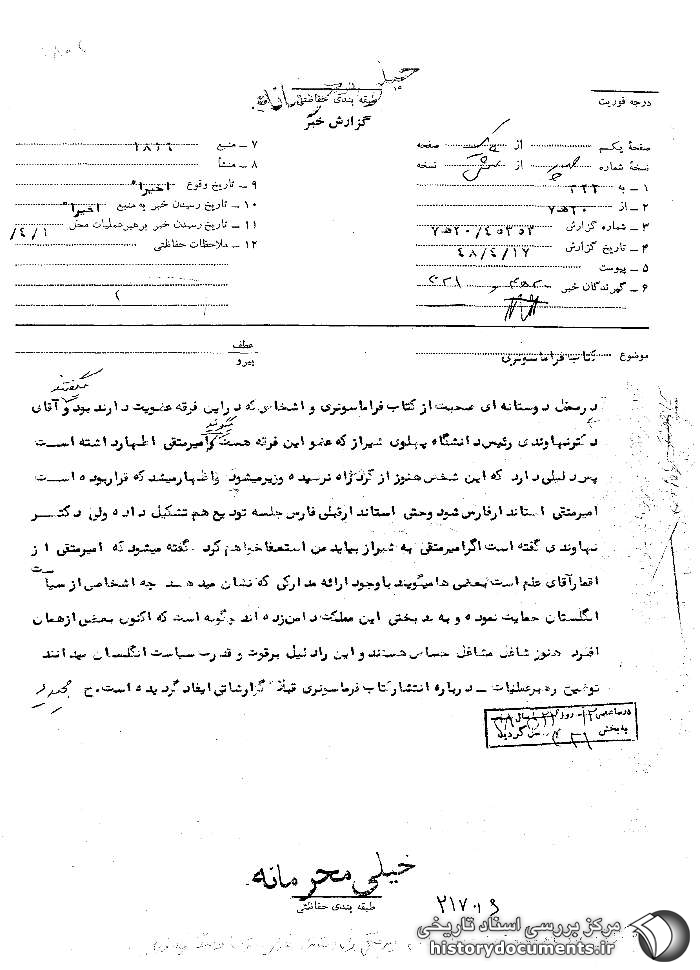 خیلی محرمانه
طبقه بندی حفاظتی
گزارش خبر
درجه فوریت
صفحهٔ یکم از یک صفحه
نسخهٔ شماره از شش نسخه
۱ – به ۳۲۲
۲ – از ۲۰ه‍۷
۳ – شماره گزارش
۴ – تاریخ گزارش ۴۸/۴/۱۷
۵ – پیوست
۶ – گیرندگان خبر
۷ – منبع ۱۸۱۹
۸ – منشأ
۹ – تاریخ وقوع اخیراً
۱۰ – تاریخ رسیدن خبر به منبع اخیراً
۱۱ – تاریخ رسیدن خبر برهبرعملیات محل /٤/۱
۱۲ – ملاحظات حفاظتی
موضوع کتاب فراماسونری
عطف
پیرو
درمحفل دوستانه ای صحبت از کتاب فراماسونری و اشخاصی که دراین فرقه عضویت دارند بود و میگفتند آقای
دکترنهاوندی رئیس دانشگاه پهلوی شیراز که عضو این فرقه هست میگوید امیرمتقی اظهارداشته است
پس دلیلی دارد که این شخص هنوز از گردراه نرسیده وزیرمیشود واظهارمیشد که قراربوده است
امیرمتقی استاندارفارس شود وحتی استاندارقبلی فارس جلسه تودیع هم تشکیل داده ولی دکتر
نهاوندی گفته است اگرامیرمتقی به شیراز بیاید من استعفاخواهم کرد. گفته میشود که امیرمتقی از
اقمارآقای علم است بعضی هامیگویند باوجود ارائه مدارکی که نشان میدهد چه اشخاصی از سیاست
انگلستان حمایت نموده و به بدبختی این مملکت دامن زده اند چگونه است که اکنون بعضی ازهمان
افراد هنوز شاغل مشاغل حساس هستند و این رادلیل برقوت و قدرت سیاست انگلستان میدانند
توضیح رهبرعملیات – درباره انتشارکتاب فرماسونری قبلاً گزارشاتی ایفاد گردیده است. ح
درساعت ۱۲ روز
به بخش گردید
خیلی محرمانه
طبقه بندی حفاظتی
مرکز بررسی اسناد تاریخی
historydocuments.ir